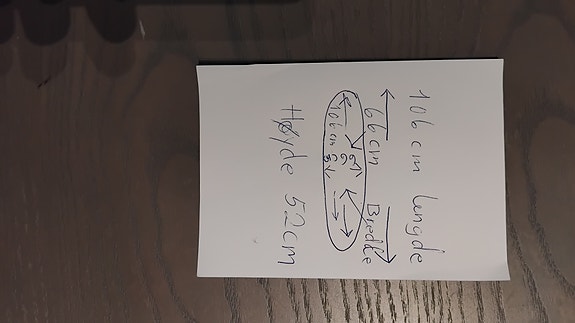 106 cm lengde
66 cm Bredde
106 cm
66
Høyde 52 cm